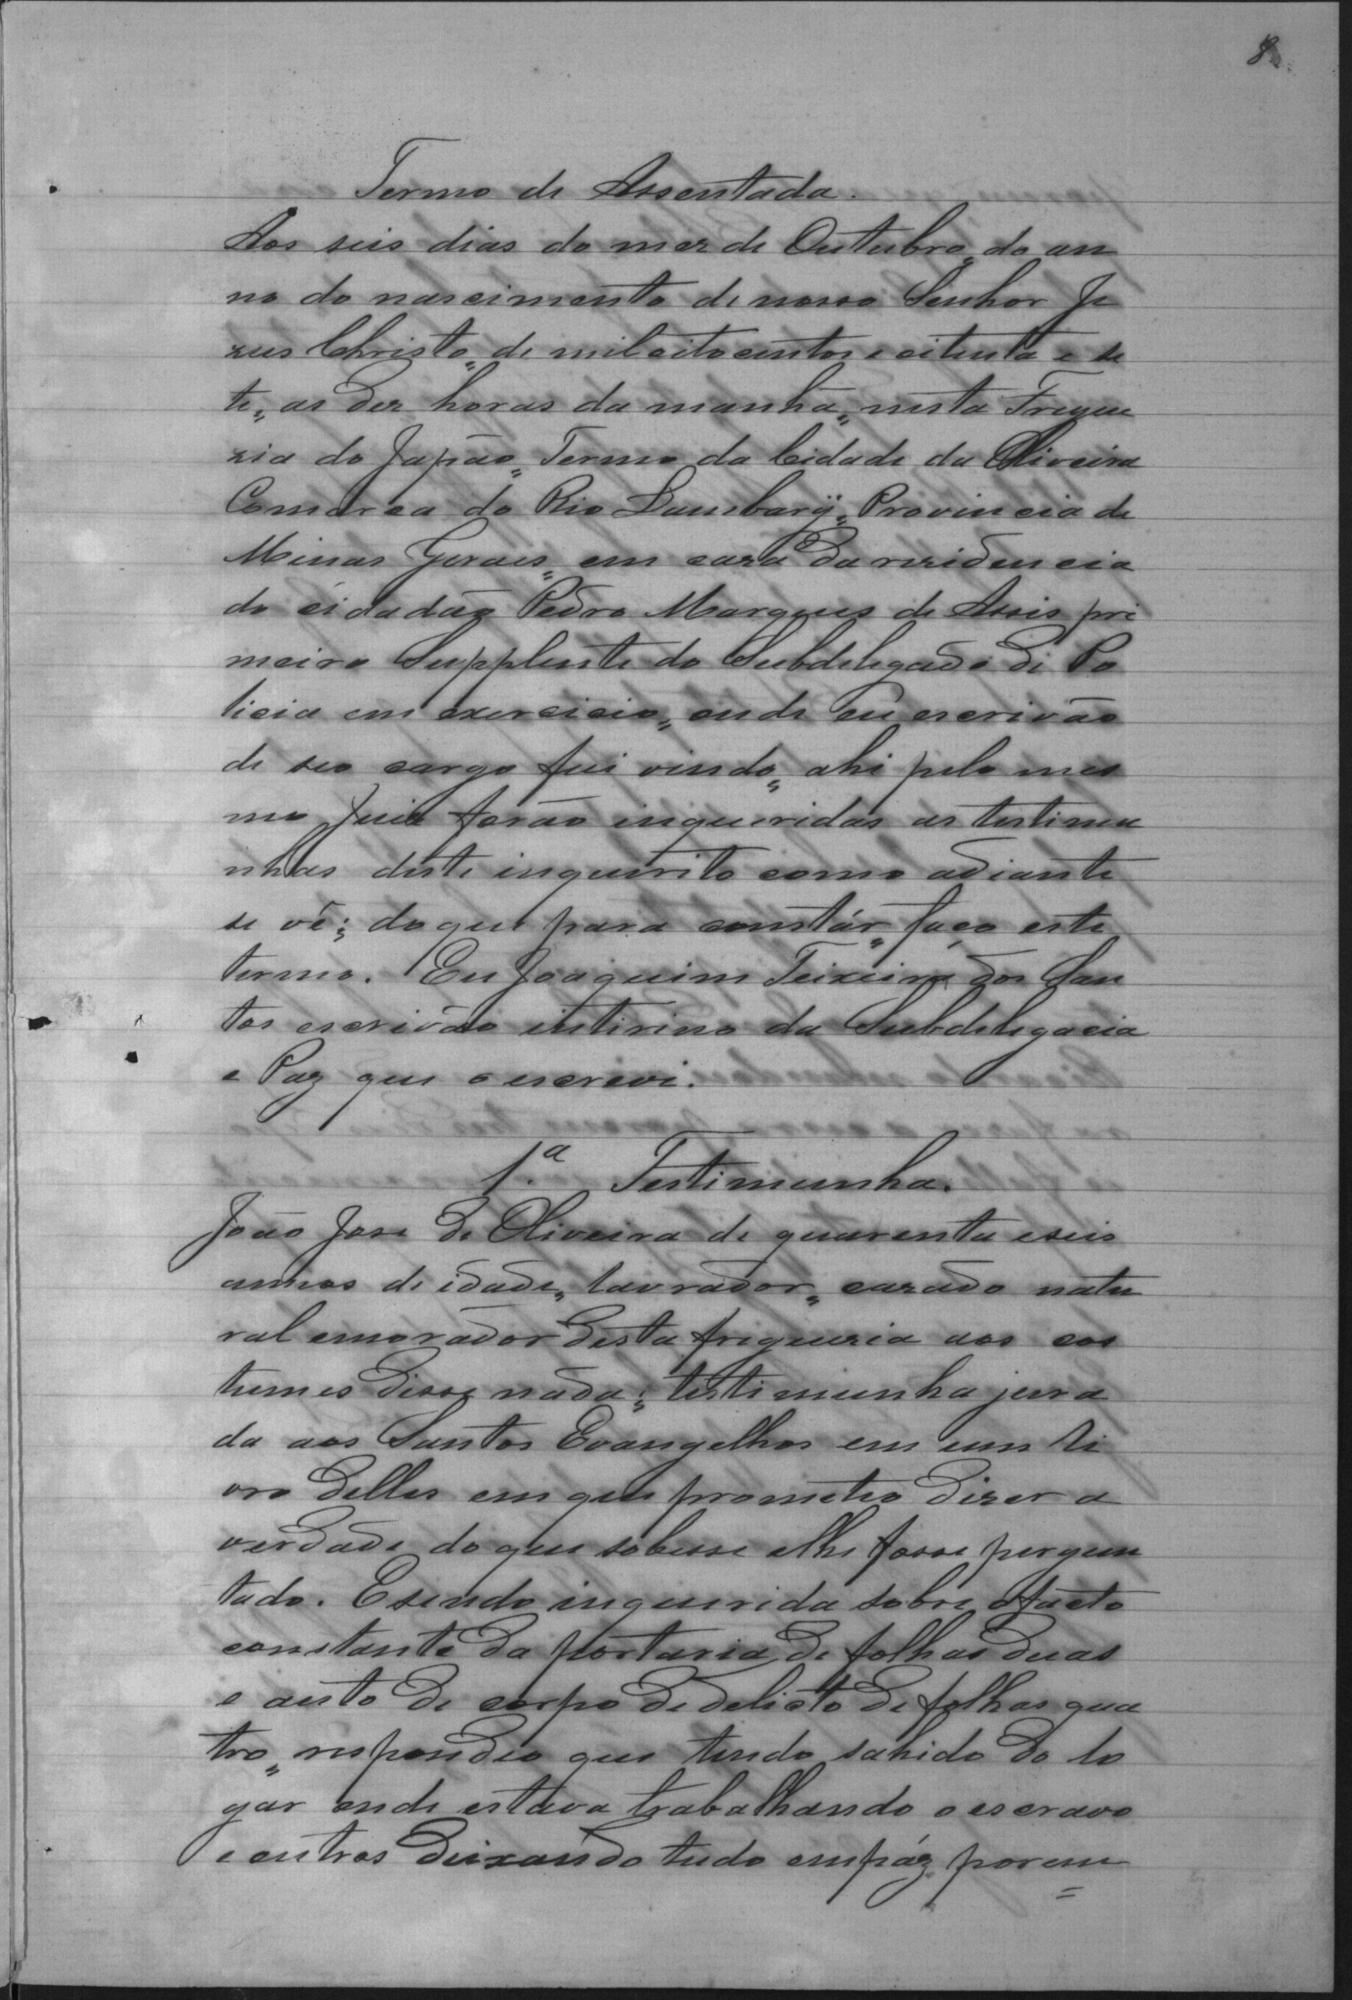 8
Termo de Assentada.
Aos seis dias do mez de Outubro„ do an
no do nascimento de nosso Senhor Je
zus Christo„ de mil oito centos e oitenta e se
te„ as dez horas da manhã„ nesta Fregue
zia do Japão„ Termo da Cidade da Oliveira
Comarca do Rio Lambarÿ„ Provincia de
Minas Geraes„ em caza da rezidencia
do cidadão Pedro Marques de Assis pri
meiro Supplente do Subdelegado de Po
licia em exercicio„ onde eu escrivão
de seo cargo fui vindo„ ahi pelo mes
mo Juiz forão inqueridas as testimu
nhas deste inquerito como adiante
se vê; do que para constár„ faço este
termo. Eu Joaquim Teixeira dos San
tos escrivão intirino da Subdelegacia
e Paz que o escrevi.
1.ª Testimunha.
João Jose de Oliveira de quarenta e seis
annos de idade„ lavrador„ cazado natu
ral e morador desta freguezia aos cos
tumes disse nada; testimunha jura
da aos Santos Evangelhos em um li
vro delles em que prometeo dizer a
verdade do que sobesse e lhe fosse pergun
tado. E sendo inquerida sobre o facto
constante da portaria de folhas duas
e auto de corpo de delicto de folhas qua
tro„ respondeo que tendo sahido do lo
gar onde estava trabalhando o escravo
e outros deixando tudo em páz porem